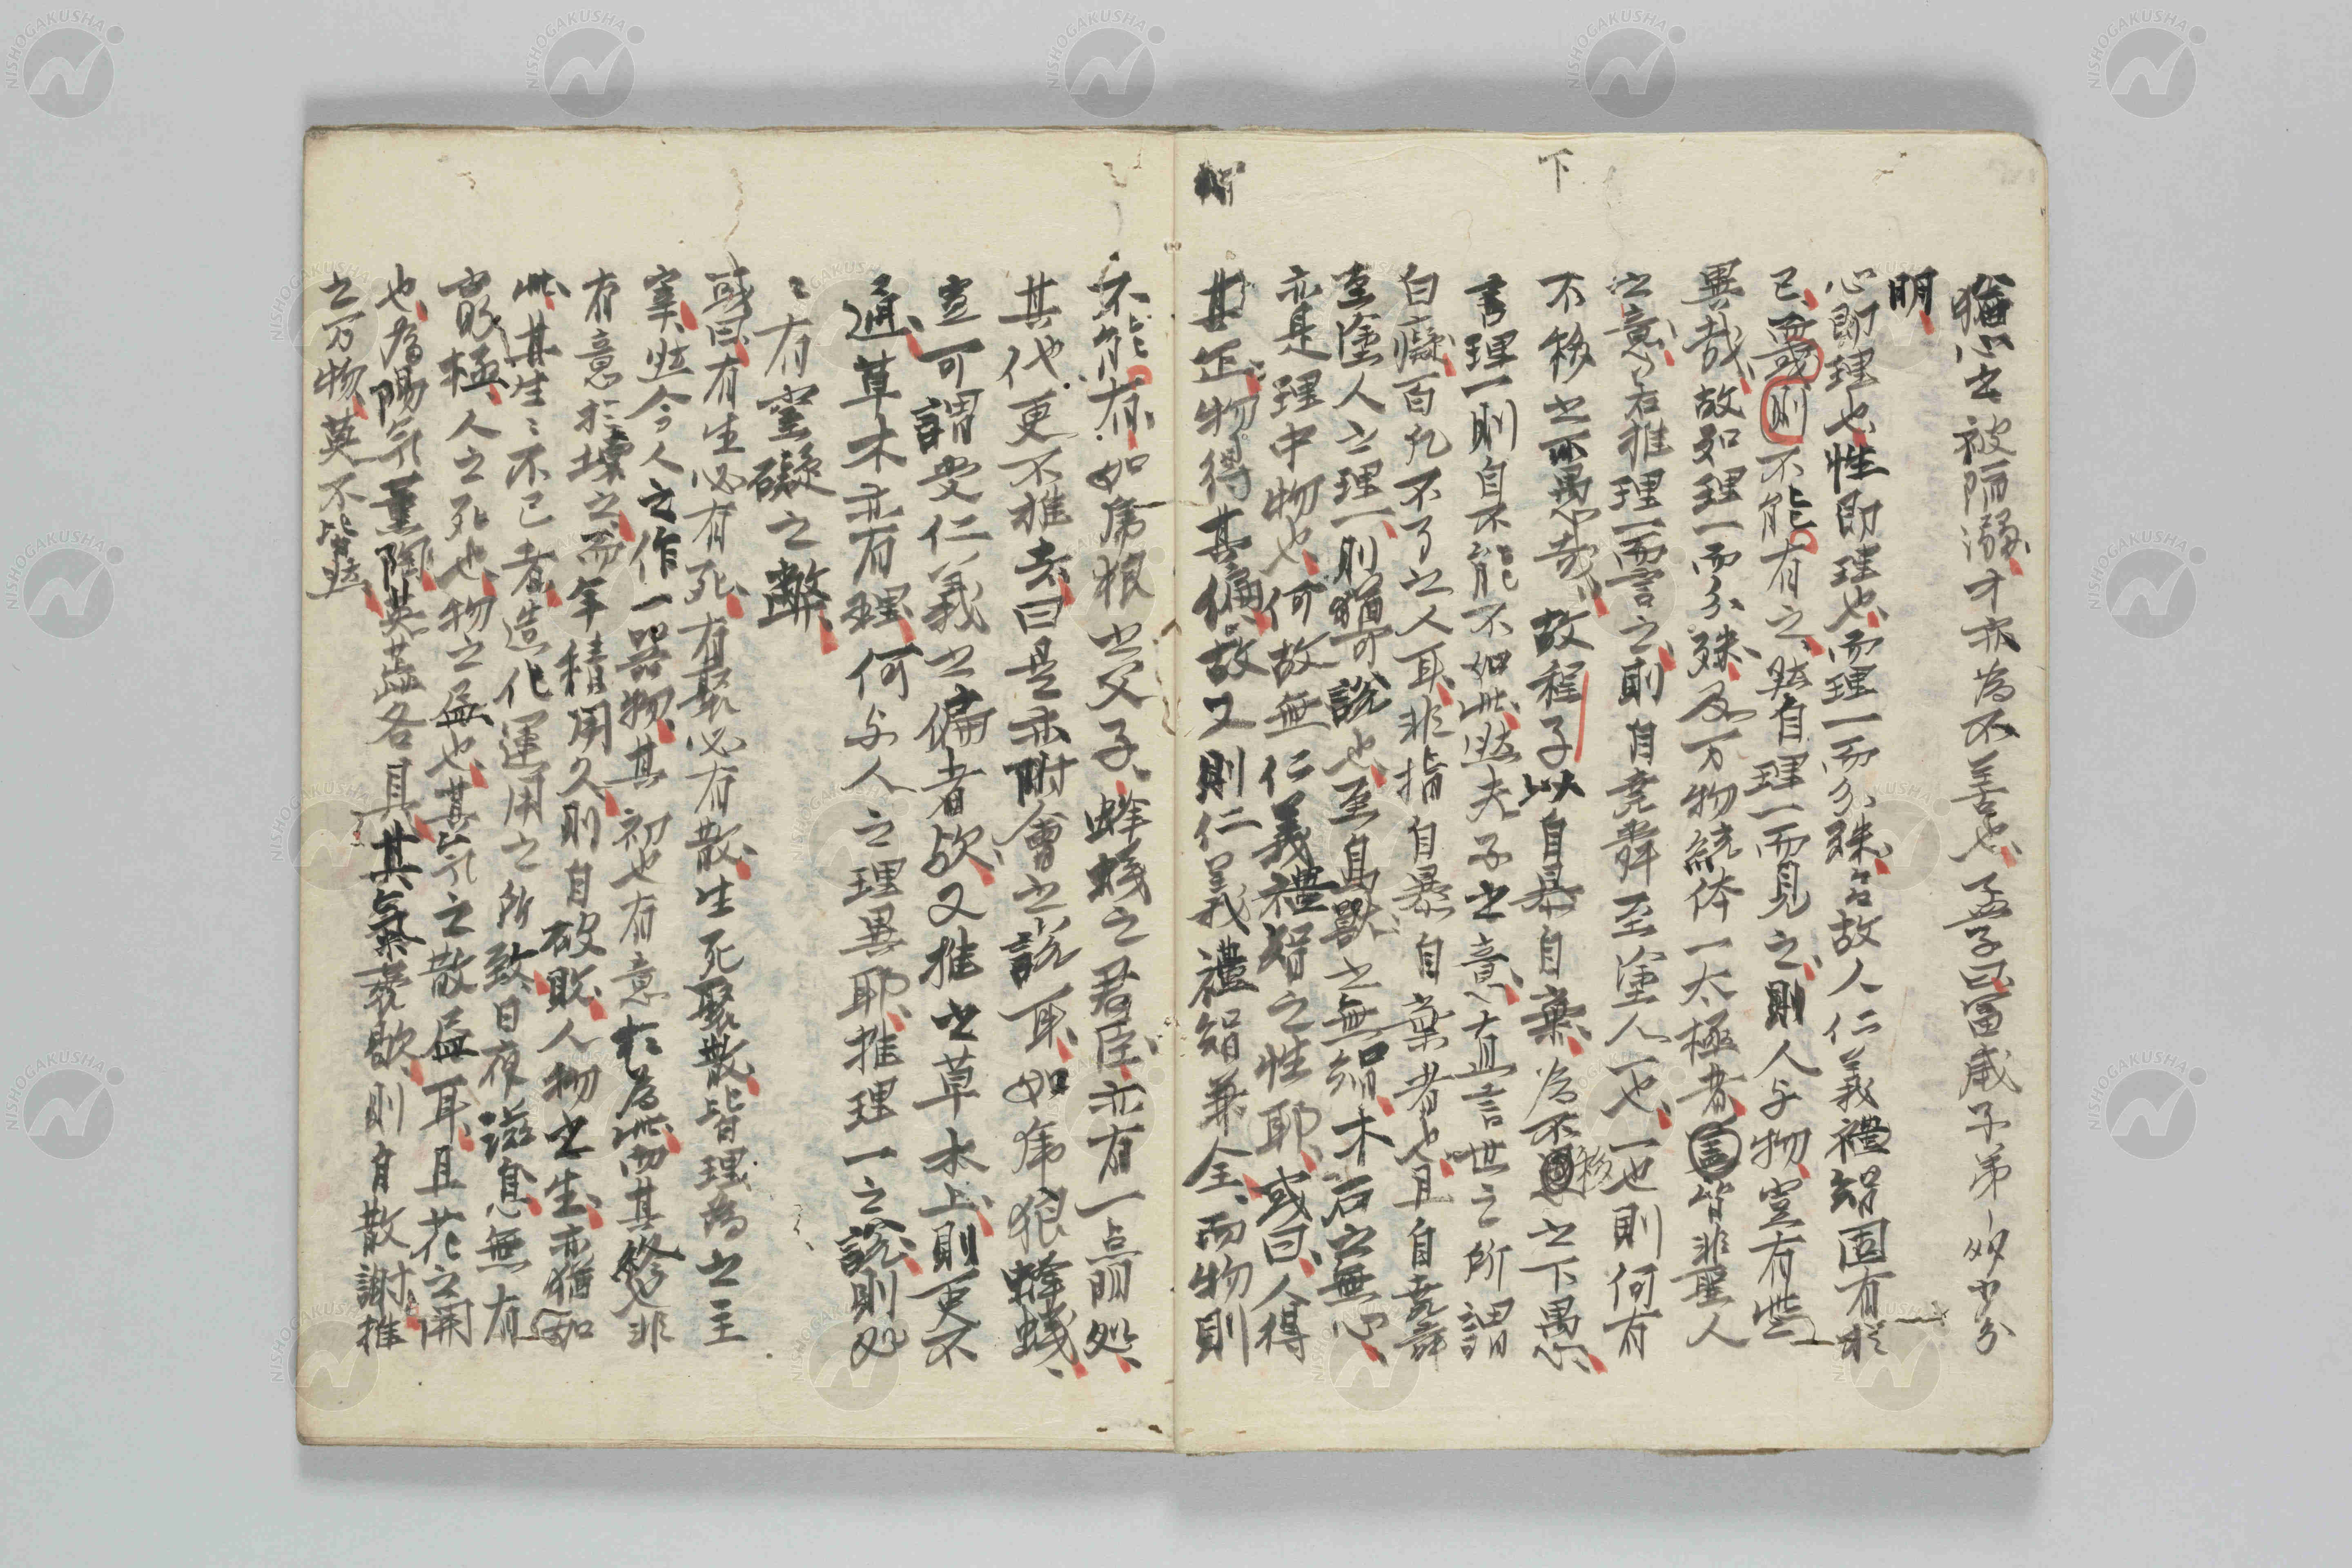 猶心之被陷溺才亦為不善也孟子曰富歲子弟多少分
明
心即理也性即理也而理一而分殊故人仁義禮智固有於
已或則不能有之然自理一而見之則人与物豈有些
異哉故如理一而分殊及万物統体一太極者皆非聖人
之意若推理一而言之則自堯舜至塗人一也一也則何有
下
不移之下愚哉故程子以自暴自棄為不移之下愚
言理一則自不能不如此然夫子之意直言世之所謂
白癡百凡不了之人耳非指自暴自棄者也且自堯舜
至塗人之理一則猶可說也至鳥獸之無智木石之無心
亦是理中物也何故無仁義禮智之性耶或曰人得
其正物得其偏故又則仁義禮智兼全而物則
不能有如虎狼之父子蜂蟻之君臣亦有一点明処
其他更不推去曰是亦附會之說耳如虎狼蜂蟻
豈可謂受仁義之偏者欤又推之草木上則更不
通草木亦有理何与人之理異耶推理一之說則処
〻有窒礙之弊
或曰有生必有死有聚必有散生死聚散皆理為之主
宰然今人之作一器物其初也有意於為此而其終也非
有意於壞之而年積用久則自破敗人物之生亦猶如
此其生〻不已者造化運用之所致日夜滋息無有
窮極人之死也物之盡也其气之散盡耳且花之開
也為陽气薫陶英蕋各具其氣衰歇則自散謝推
之万物莫不皆然